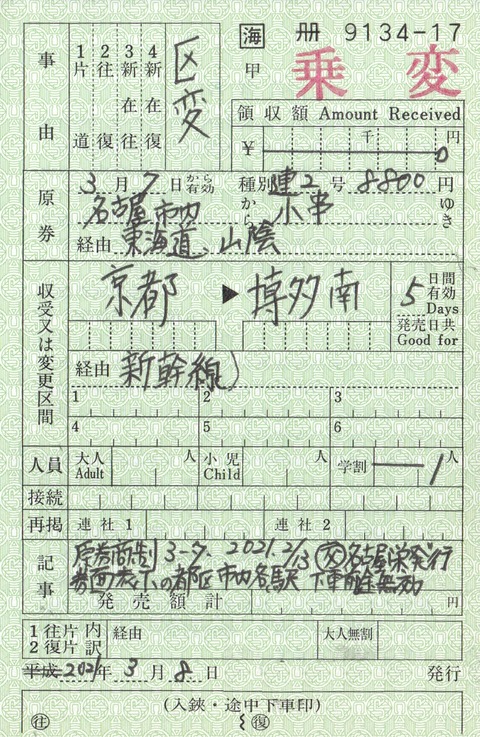 海 冊 9134-17
甲 乗 変
事由
1片道
2往復
3新在往
4新在復
区変
領収額 Amount Received
千 円
¥ 0
原券
3月7日から有効 種別 連2号 8800円
名古屋市内 から 小串 ゆき
経由 東海道、山陰
収受又は変更区間
京都 ▶ 博多南
5日間有効
Days
発売日共
Good for
経由 新幹線)
1 2 3
4 5 6
人員 大人 Adult 人 小児 Child 人 学割 1人
接続
再掲 連社1 連社2
記事
原券商制 3-7、2021.2/13 交 名古屋栄発行
券面表示の都区市内各駅 下車前途無効
発売額計 円
1往片内
2復片訳
経由 大人無割
平成 2021年 3月8日 発行
(入鋏・途中下車印)
往 復